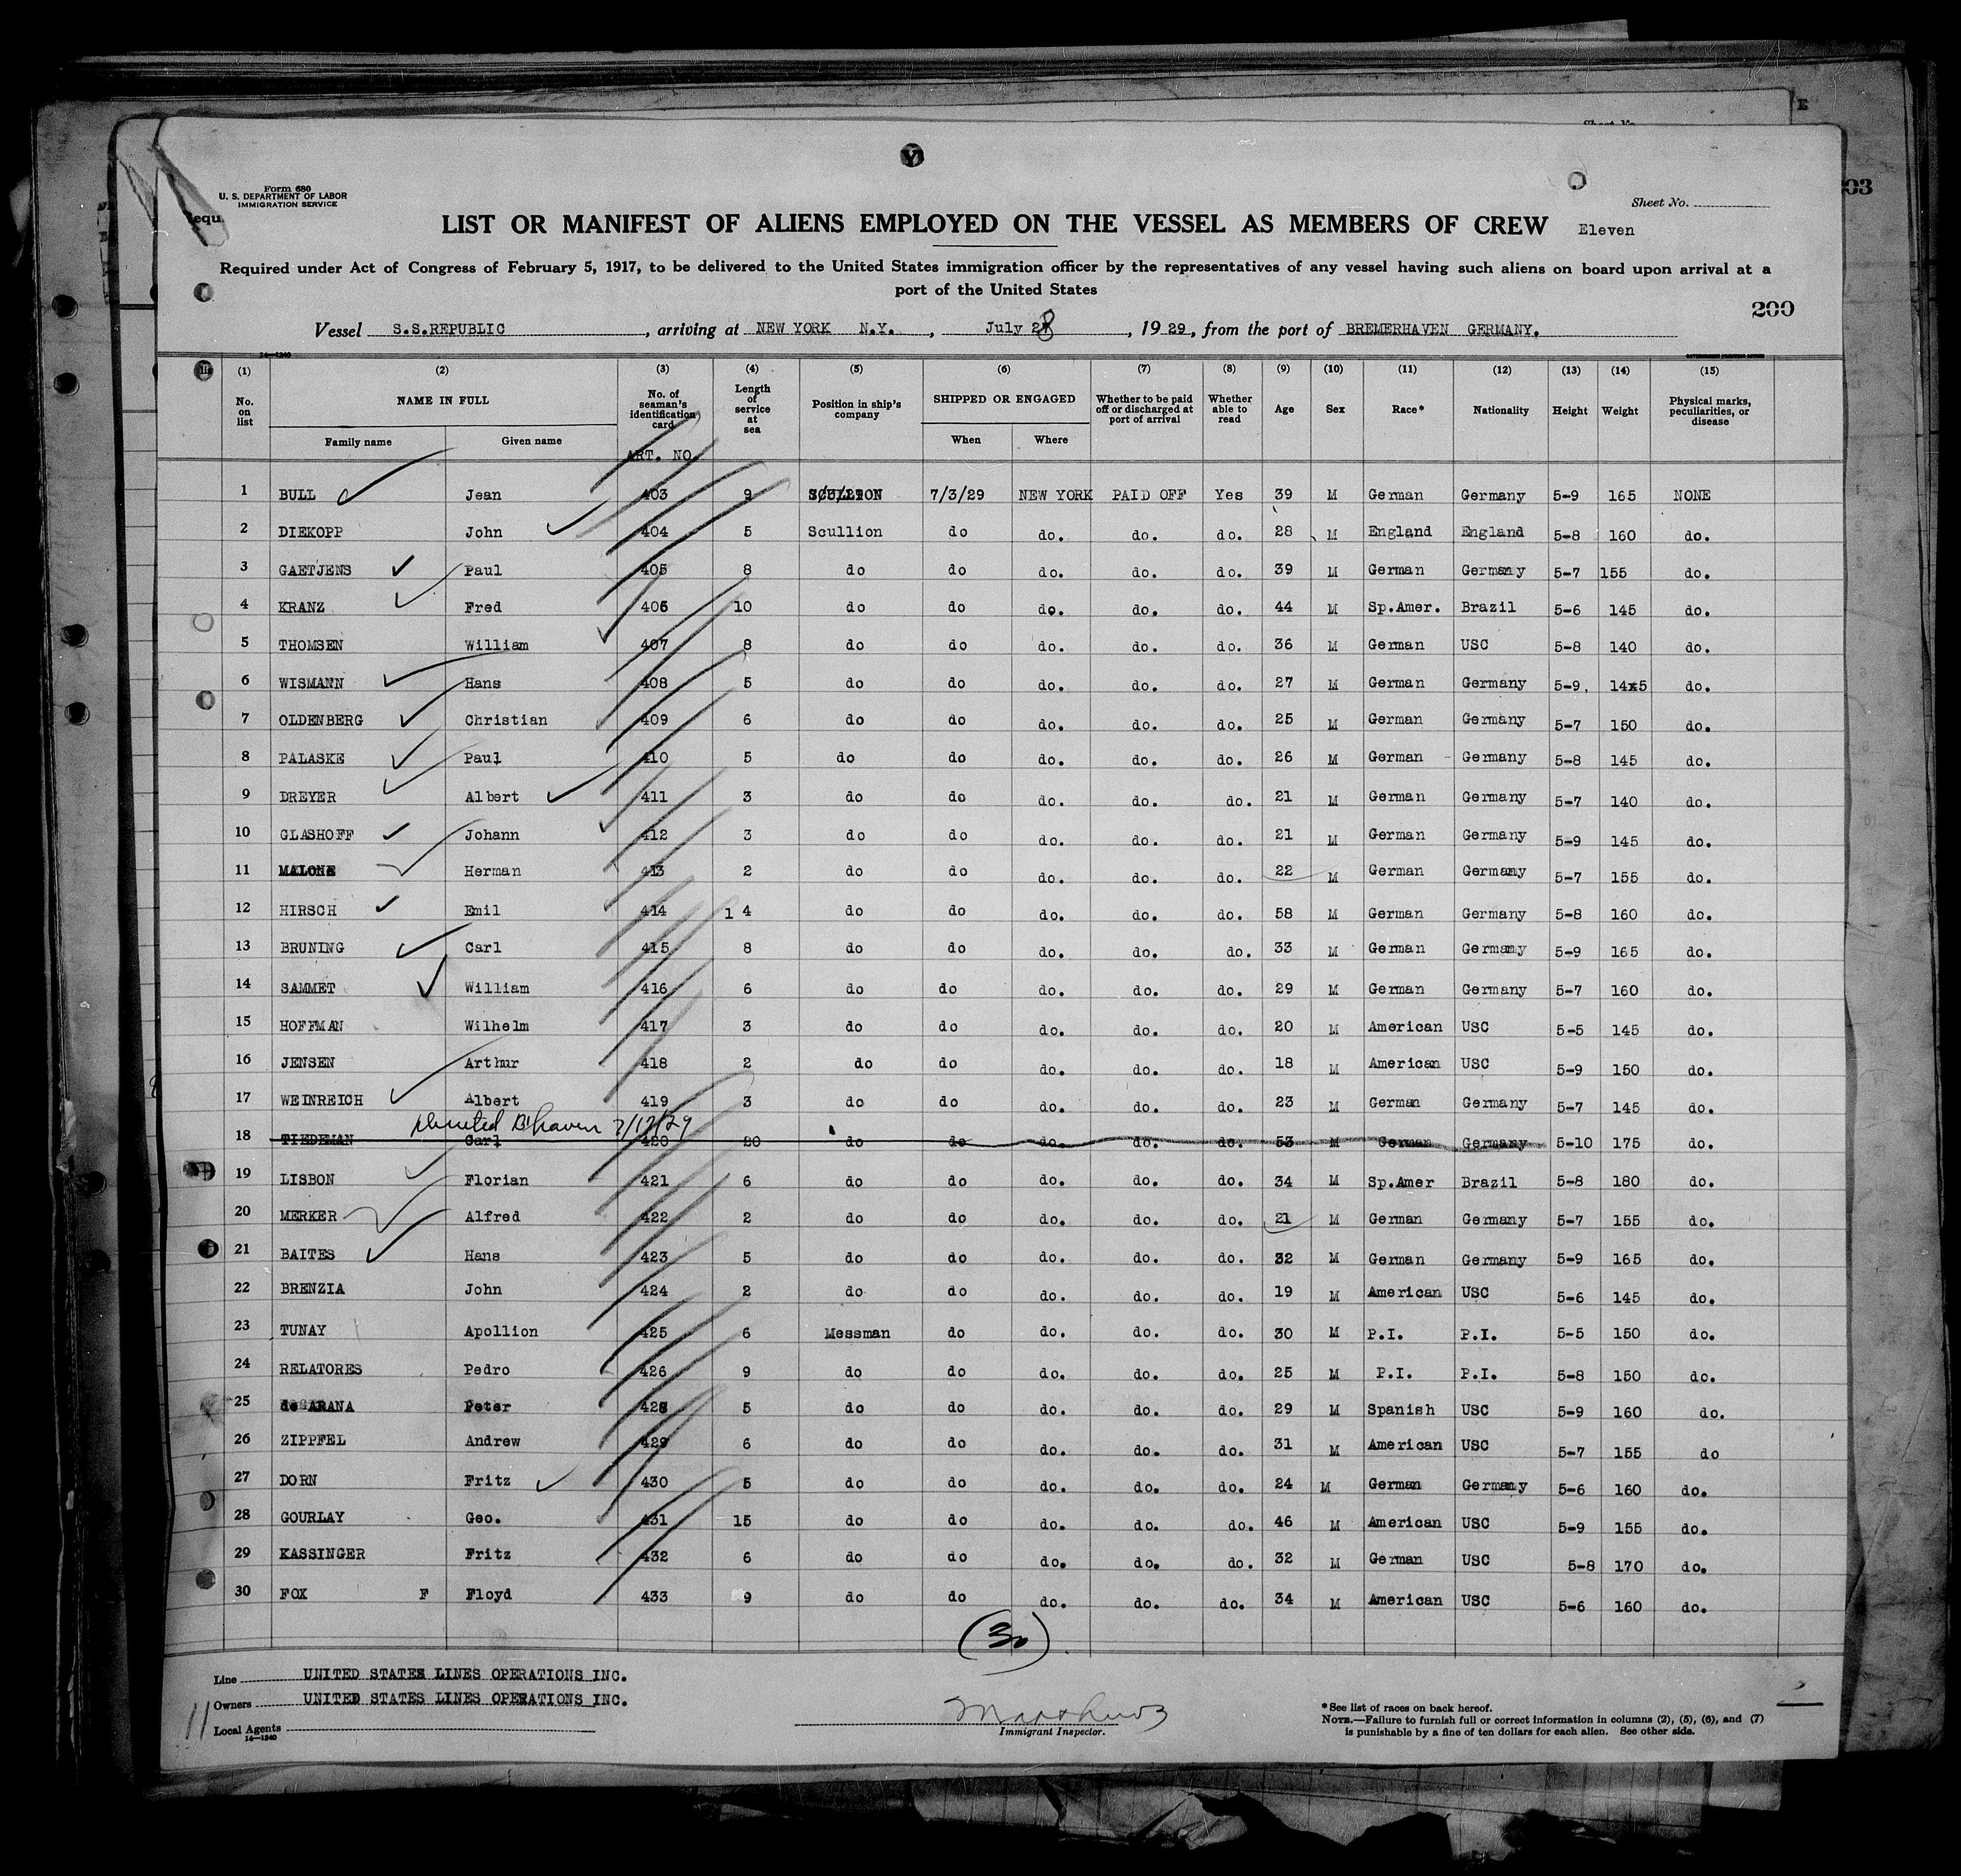 Form 680
U. S. DEPARTMENT OF LABOR
IMMIGRATION SERVICE
Sheet No.
LIST OR MANIFEST OF ALIENS EMPLOYED ON THE VESSEL AS MEMBERS OF CREW Eleven
Required under Act of Congress of February 5, 1917, to be delivered to the United States immigration officer by the representatives of any vessel having such aliens on board upon arrival at a
port of the United States
200
Vessel S.S.REPUBLIC, arriving at NEW YORK N.Y., July 28, 1929, from the port of BREMERHAVEN GERMANY.
14—1240
(1) (2) (3) (4) (5) (6) (7) (8) (9) (10) (11) (12) (13) (14) (15)
No. on list NAME IN FULL Family name Given name No. of seaman's identification card ART. NO. Length of service at sea Position in ship's company SHIPPED OR ENGAGED When Where Whether to be paid off or discharged at port of arrival Whether able to read Age Sex Race* Nationality Height Weight Physical marks, peculiarities, or disease
1 BULL Jean 403 9 SCULLION 7/3/29 NEW YORK PAID OFF Yes 39 M German Germany 5-9 165 NONE
2 DIEKOPP John 404 5 Scullion do do. do. do. 28 M England England 5-8 160 do.
3 GAETJENS Paul 405 8 do do do. do. do. 39 M German Germany 5-7 155 do.
4 KRANZ Fred 406 10 do do do. do. do. 44 M Sp.Amer. Brazil 5-6 145 do.
5 THOMSEN William 407 8 do do do. do. do. 36 M German USC 5-8 140 do.
6 WISMANN Hans 408 5 do do do. do. do. 27 M German Germany 5-9. 14x5 do.
7 OLDENBERG Christian 409 6 do do do. do. do. 25 M German Germany 5-7 150 do.
8 PALASKE Paul 410 5 do do do. do. do. 26 M German Germany 5-8 145 do.
9 DREYER Albert 411 3 do do do. do. do. 21 M German Germany 5-7 140 do.
10 GLASHOFF Johann 412 3 do do do. do. do. 21 M German Germany 5-9 145 do.
11 MALONE Herman 413 2 do do do. do. do. 22 M German Germany 5-7 155 do.
12 HIRSCH Emil 414 1 4 do do do. do. do. 58 M German Germany 5-8 160 do.
13 BRUNING Carl 415 8 do do do. do. do. 33 M German Germany 5-9 165 do.
14 SAMMET William 416 6 do do do. do. do. 29 M German Germany 5-7 160 do.
15 HOFFMAN Wilhelm 417 3 do do do. do. do. 20 M American USC 5-5 145 do.
16 JENSEN Arthur 418 2 do do do. do. do. 18 M American USC 5-9 150 do.
17 WEINREICH Albert 419 3 do do do. do. do. 23 M German Germany 5-7 145 do.
B'haven 7/17/29
18 TIEDEMAN Carl 420 20 do do do. do. do. 53 M German Germany 5-10 175 do.
19 LISBON Florian 421 6 do do do. do. do. 34 M Sp.Amer Brazil 5-8 180 do.
20 MERKER Alfred 422 2 do do do. do. do. 21 M German Germany 5-7 155 do.
21 BAITES Hans 423 5 do do do. do. do. 32 M German Germany 5-9 165 do.
22 BRENZIA John 424 2 do do do. do. do. 19 M American USC 5-6 145 do.
23 TUNAY Apollion 425 6 Messman do do. do. do. 30 M P.I. P.I. 5-5 150 do.
24 RELATORES Pedro 426 9 do do do. do. do. 25 M P.I. P.I. 5-8 150 do.
25 de ARANA Peter 428 5 do do do. do. do. 29 M Spanish USC 5-9 160 do.
26 ZIPPFEL Andrew 429 6 do do do. do. do. 31 M American USC 5-7 155 do
27 DORN Fritz 430 5 do do do. do. do. 24 M German Germany 5-6 160 do.
28 GOURLAY Geo. 431 15 do do do. do. do. 46 M American USC 5-9 155 do.
29 KASSINGER Fritz 432 6 do do do. do. do. 32 M German USC 5-8 170 do.
30 FOX F Floyd 433 9 do do do. do. do. 34 M American USC 5-6 160 do.
(30)
Line UNITED STATES LINES OPERATIONS INC.
Owners UNITED STATES LINES OPERATIONS INC.
11
Local Agents
14—1240
Immigrant Inspector.
*See list of races on back hereof.
NOTE.—Failure to furnish full or correct information in columns (2), (5), (6), and (7)
is punishable by a fine of ten dollars for each alien. See other side.